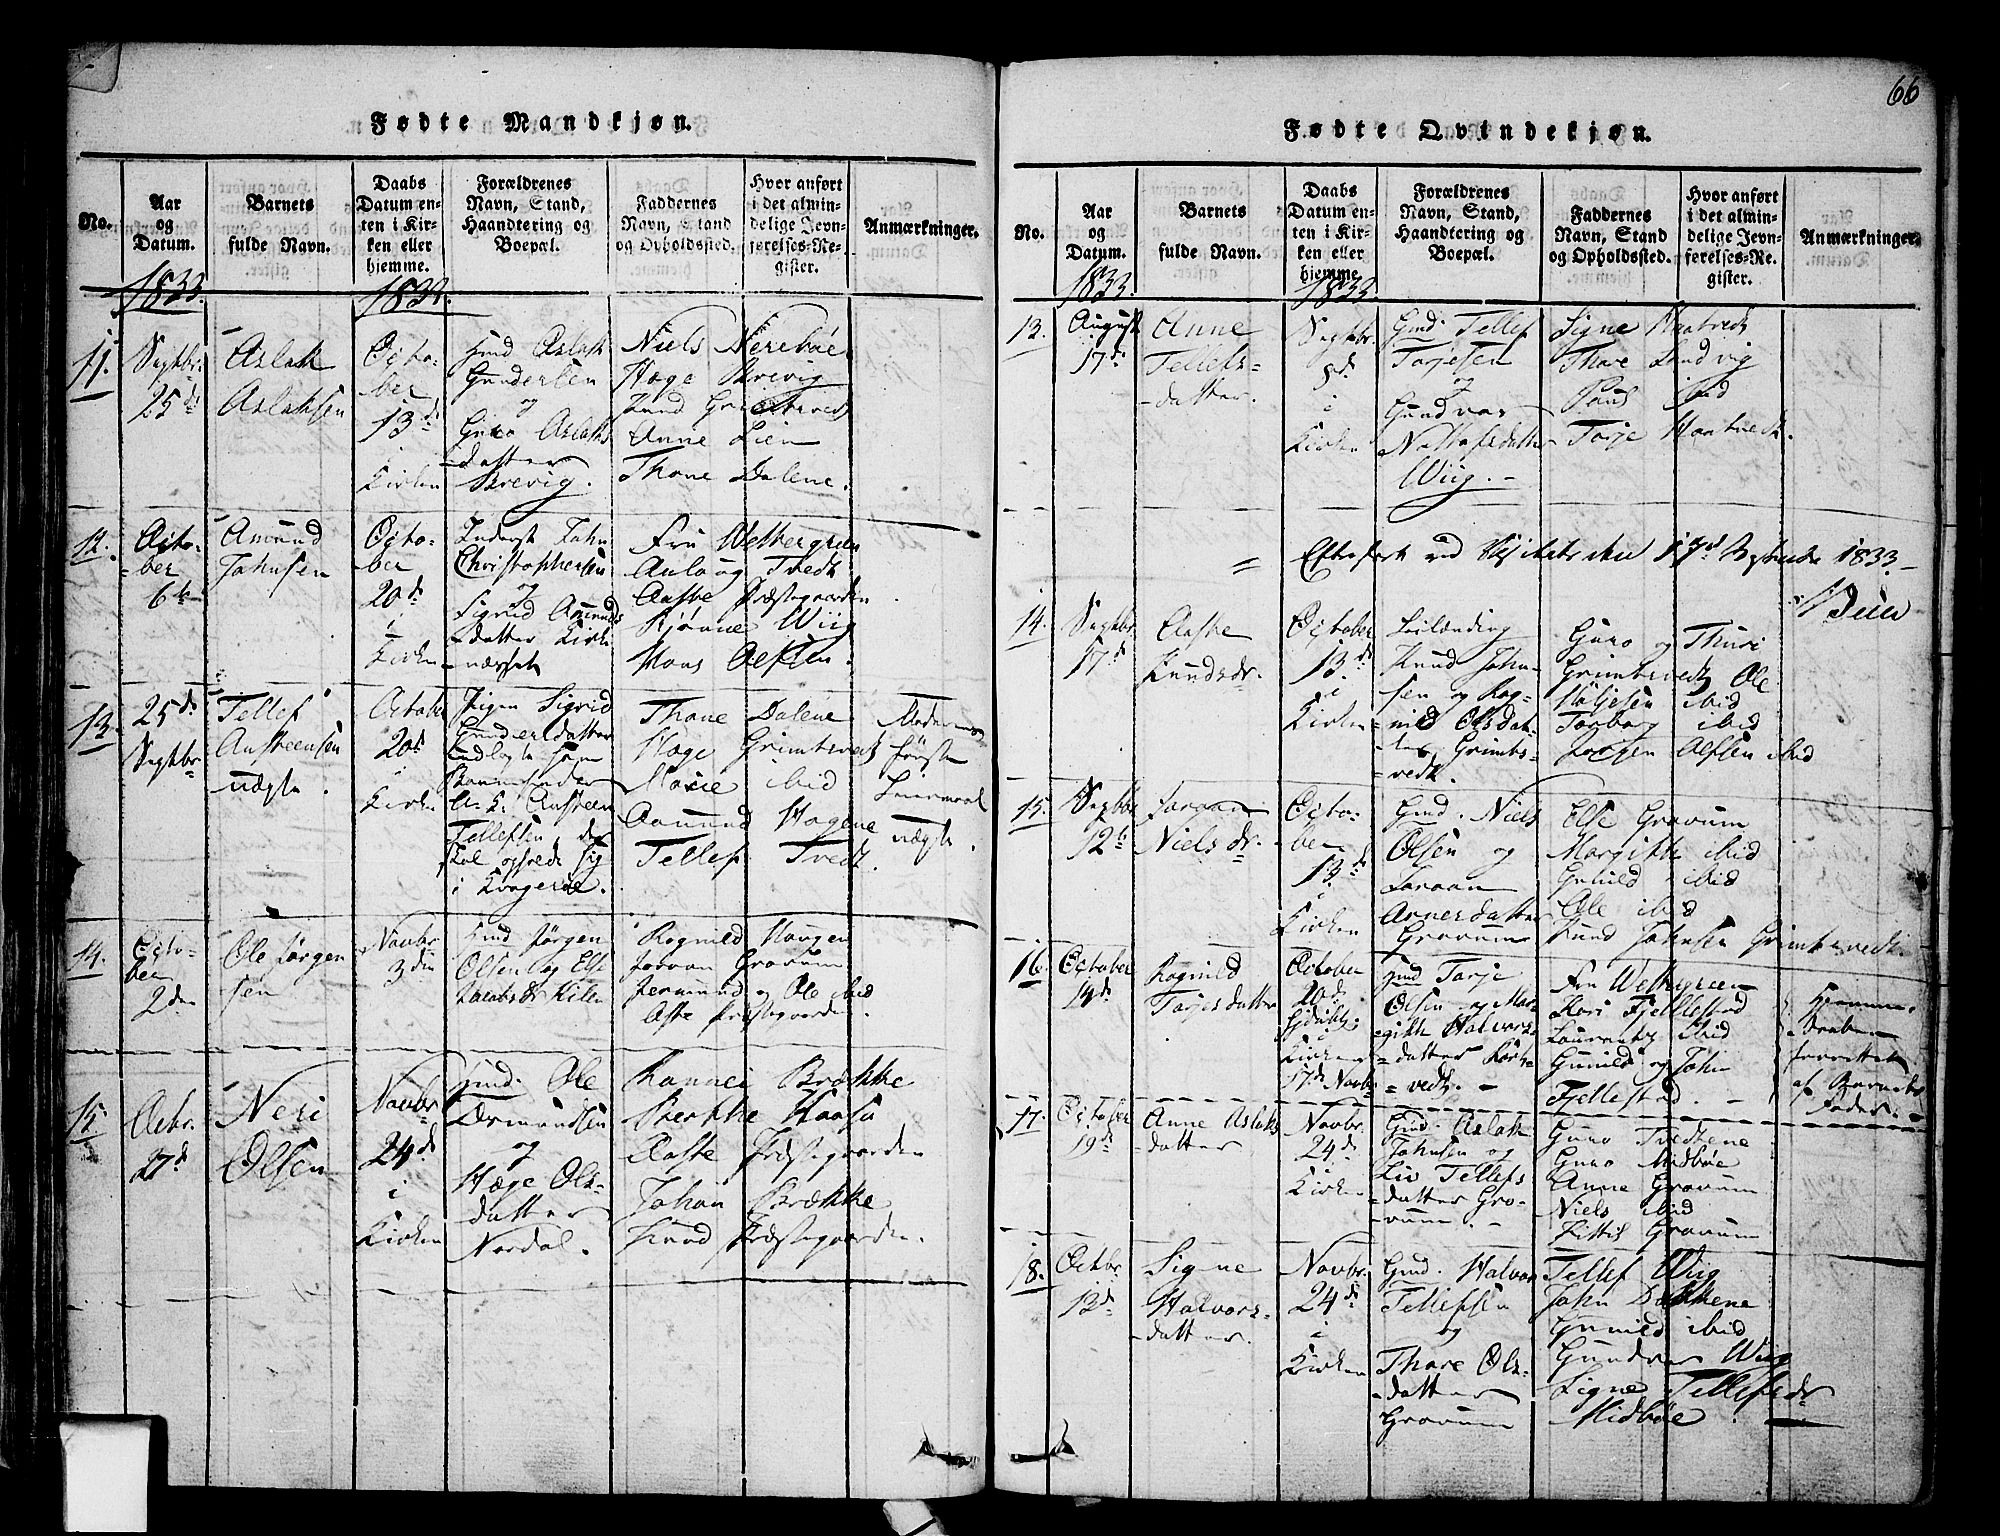 66
Fødte Mandkjøn.
No.
Aar
og
Datum.
Barnets
fulde Navn.
Daabs
Datum en-
ten i Kir-
ken eller
hjemme.
Forældrenes
Navn, Stand,
Haandtering og
Boepæl.
Faddernes
Navn, Stand
og Opholdssted.
Hvor anført
i det almin-
delige Jevn-
førelses-Re-
gister.
Anmærkninger.
1833.
11.
Septbr.
25d
Aslak
Aslaksen
Octo-
ber
13d
i
Kirken
Gmd Aslak
Gundersen
og
Guro Aslaks-
datter
Brevig.
Niels Nereböe
Hæge Brevig
Knud Grimtsvedt
Anne Lien
Thone Dalene.
12.
Octo-
ber
6te
Amund
Johnsen
Octo-
ber
20d
i
Kirken
Inderst John
Christophersen
og
Sigrid Amunds
datter Kirke
næsset
Fru Wethergreen
Aaslaug Tvedt
Aaste Præstegaarden
Kjønne Wiig
Hans Olsen.
13.
25d
Septbr
Tellef
Austeensen
uægte.
October
20d
i
Kirken
Pigen Sigrid
Gundersdatter
Udlagte som
Barnefader
U. K. Austeen
Tellefsen, der
skal opholde sig
i Kragerøe.
Thone Dalene
Hæge Grimtsvedt
Marie ibid
Aamund Hagene
Tellef Tvedt.
Moderens
første
Leiermaal
uægte.
14.
Octo-
ber
2den
Ole Jørgen
sen
Novbr
3die
Gmd Jørgen
Olsen og Else
Jacobsdr Kilen
Ragnild Haugen
Joraan Gravum
Jermund og Ole ibid
Aaste Præstegaarden.
15.
Octbr.
27d
Neri
Olsen
Novbr
24d
i
Kirken
Gmd. Ole
Osmundsen
og
Hæge Ols-
datter
Nordal.
Rannei Brøkke
Berthe Haasu
Aaste Præstegaarden
Johan Brøkke
Knud Præstegaarden.
Fødte Qvindekjøn.
No.
Aar
og
Datum.
Barnets
fulde Navn.
Daabs
Datum en-
ten i Kir-
ken eller
hjemme.
Forældrenes
Navn, Stand,
Haandtering og
Boepæl.
Faddernes
Navn, Stand
og Opholdssted.
Hvor anført
i det almin-
delige Jevn-
førelses-Re-
gister.
Anmærkninger.
1833.
1833.
13.
August
17d
Anne
Tellefs-
datter.
Septbr.
8d
i
Kirken
Gmd. Tellef
Torjesen
og
Gundvor
Nottolfsdatter
Wiig.
Signe Haatvedt
Thore Landvig
Povel ibid
Torje Haatvedt.
Efterseet ved Visitatsen 17d Septembr 1833.
14.
Septbr.
17d
Aaste
Knudsdr.
October
13d
i
Kirken
Leilænding
Knud John-
sen og Rag-
nild Olsdat-
ter Grimts-
vedt.
Guro og Thuri
Grimtsvedt Ole
Høljesen ibid
Torborg ibid
Jørgen Olsen ibid
15.
Septbr
12te
Joraan
Nielsdr.
Octo-
ber
13d
i
Kirken
Gmd. Niels
Olsen og
Joraan
Arnesdatter
Gravum
Else Gravum
Margithe ibid
Gunild ibid
Ole ibid
Knud Johnsen Grimtsvedt
16.
October
14d
Ragnild
Torjesdatter
October
20d
Hjdøbt,
i
Kirken
17d Novbr
Gmd Torje
Olsen og Mar-
githe Halvors-
datter Kirke-
vedt.
Fru Wethergreen
Kari Fjellestad
Laurants ibid
Gunild og John
Fjellestad.
Hjemme-
daaben
forrettet
af Barnets
Fader.
17.
October
19d
Anne Aslaks
datter
Novbr.
24d
Kirken
Gmd. Aslak
Johnsen og
Liv Tellefs
datter Gra-
vum.
Guro Tvedtene
Guro Midböe
Anne Gravum
Niels ibid
Kittil Gravum
18.
Octbr.
13d
Signe
Halvors-
datter.
Novbr.
24d
i
Kirken
Gmd. Halvor
Tellefsen
og
Thore Ols-
datter
Gravum
Tellef Wiig
John Bakkene
Gunild ibid
Gundvor Wiig
Signe Tellefsdr
Midböe.